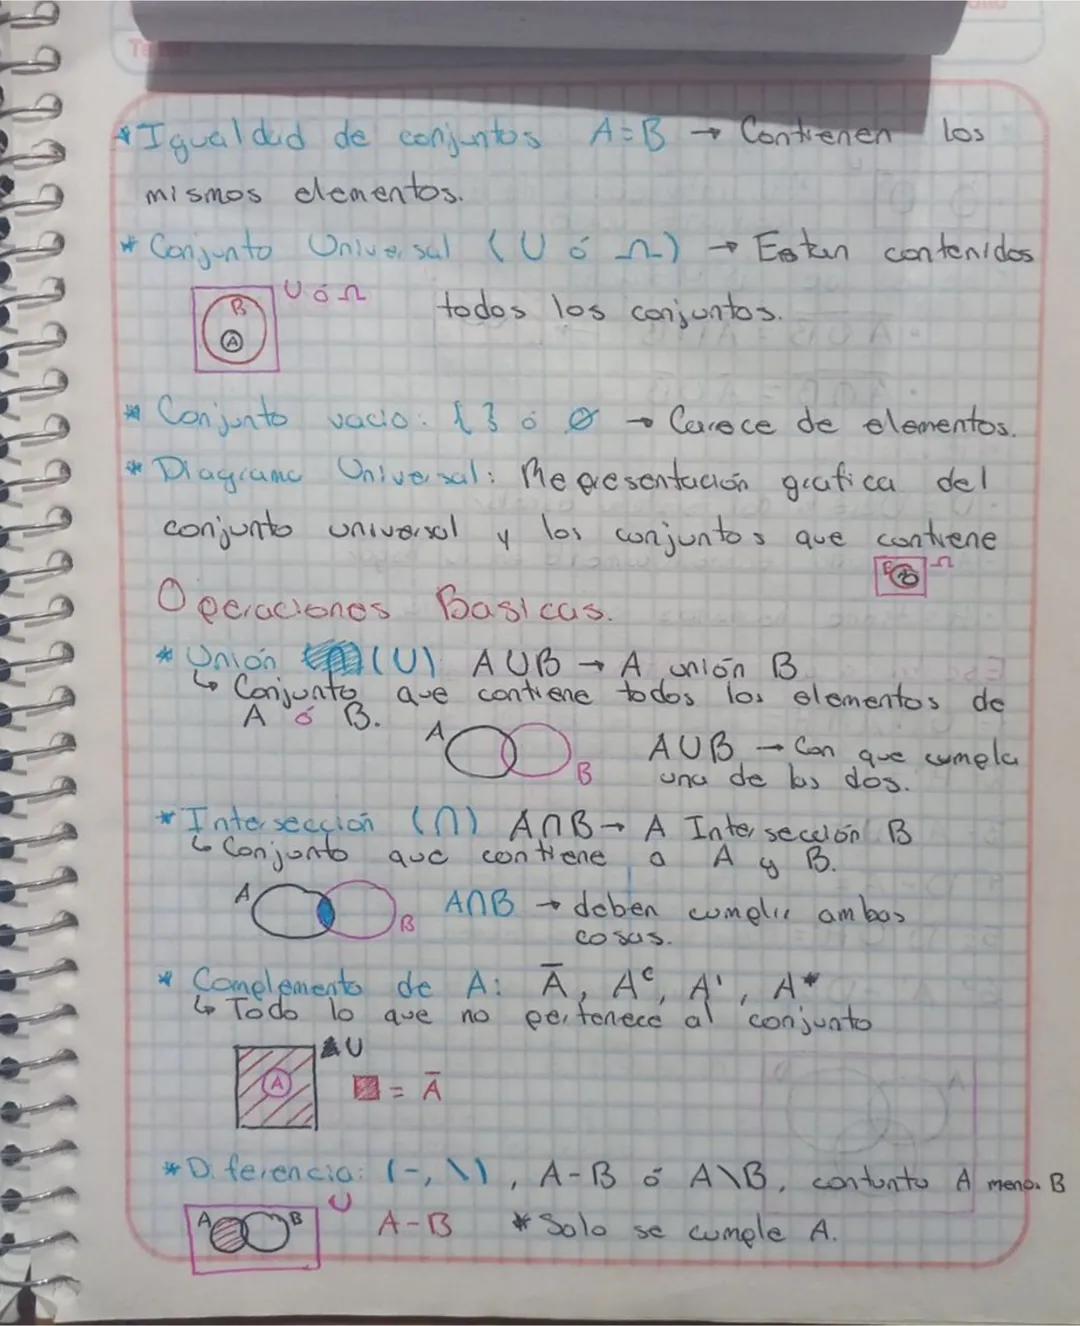 * Igualdad de conjuntos A=B → Contienen los
mismos elementos.
* Conjunto Universal (U ó Ω) → Estan contenidos
U ó Ω
B
A
todos los conjuntos.
* Conjunto vacio: { } ó Ø → Carece de elementos.
* Diagrama Universal: Representación grafica del
conjunto universal y los conjuntos que contiene
Ω
Operaciones Basicas.
* Unión (U) AUB → A unión B
↳ Conjunto que contiene todos los elementos de
A ó B.
A
B
AUB → Con que cumpla
una de los dos.
* Intersección (∩) A∩B → A Intersección B
↳ Conjunto que contiene a A y B.
A
B
A∩B → deben cumplir ambas
cosas.
* Complemento de A: Ā, Aᶜ, A', A*
↳ Todo lo que no pertenece al conjunto
U
A
= Ā
* Diferencia: (-, \), A-B ó A\B, contunto A menos B
U
A
B
A-B * Solo se cumple A.